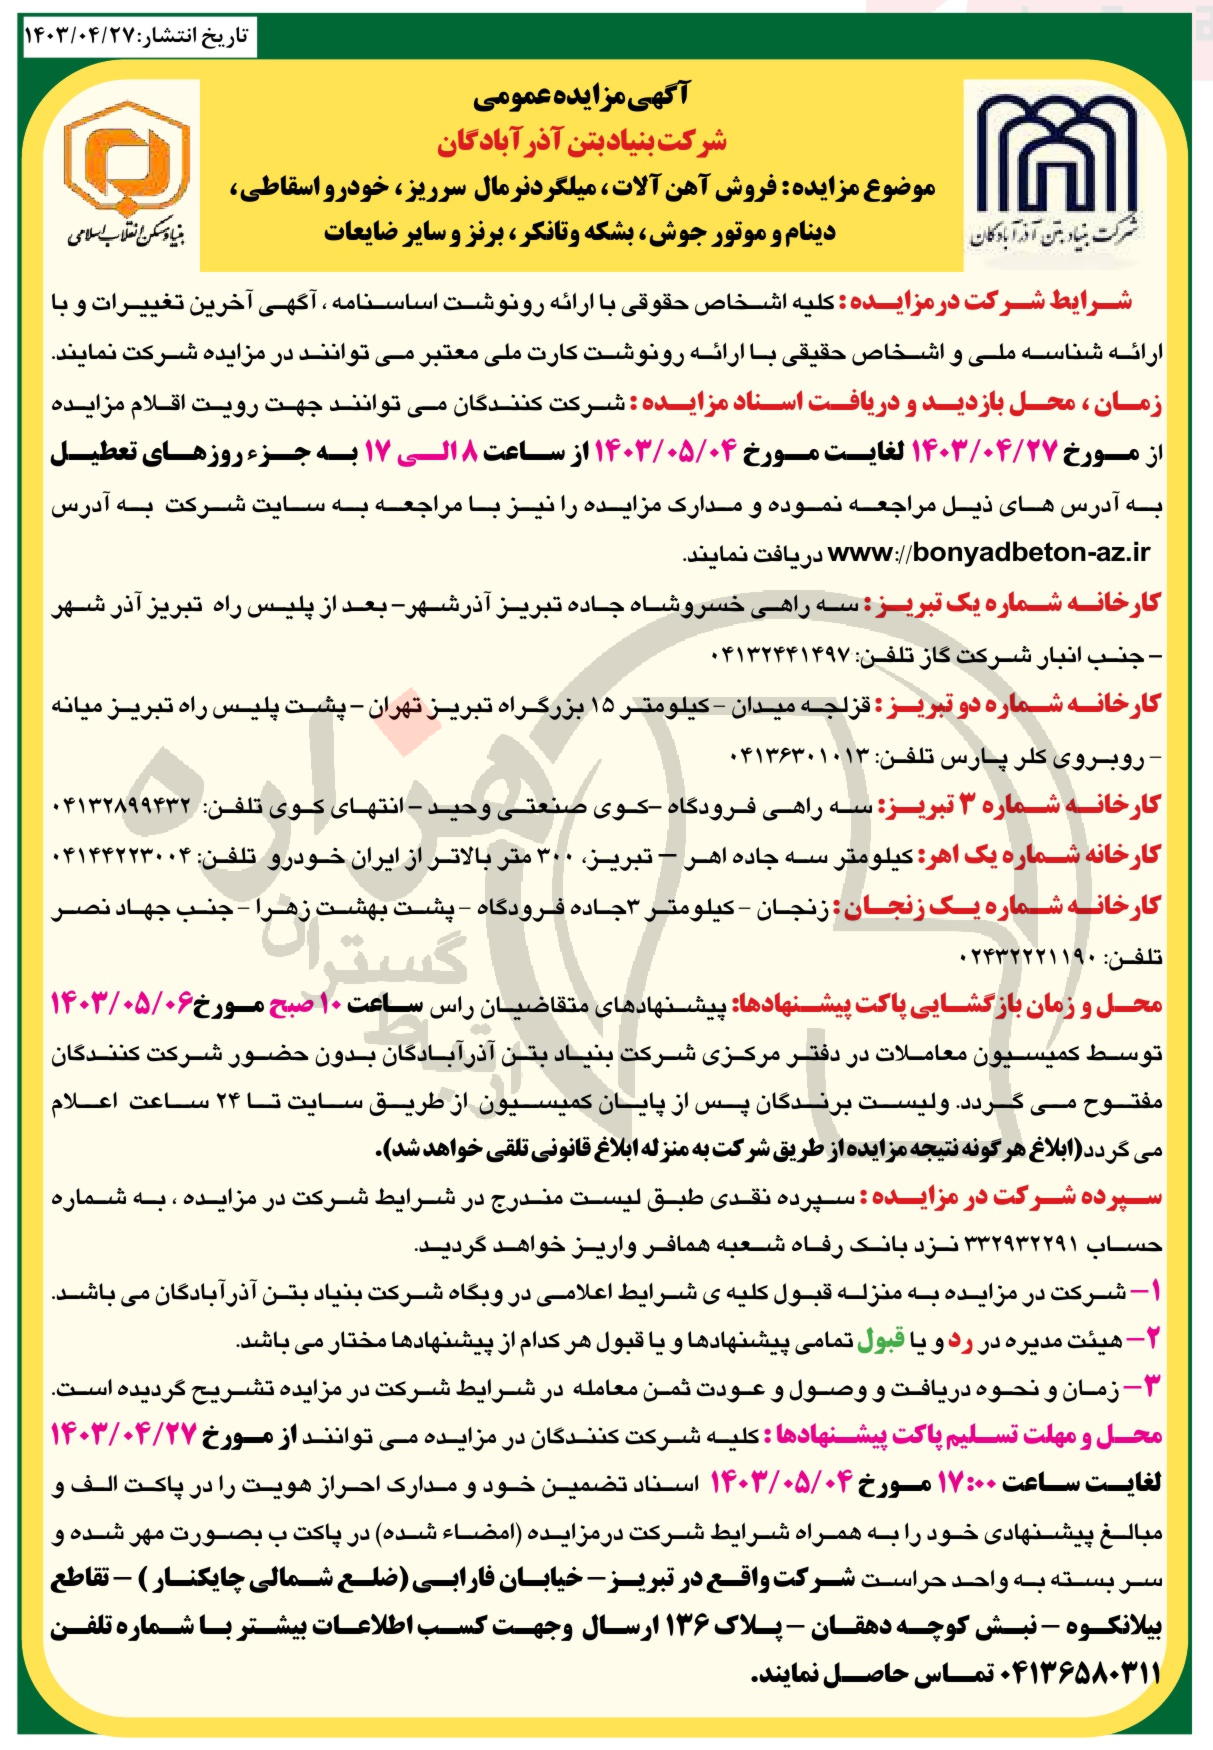 تاریخ انتشار:۱۴۰۳/۰۴/۲۷
آگهی مزایده عمومی
شرکت بنیاد بتن آذرآبادگان
موضوع مزایده: فروش آهن آلات، میلگرد نرمال سرریز، خودرو اسقاطی،
دینام و موتور جوش، بشکه وتانکر، برنز و سایر ضایعات
شرکت بنیاد بتن آذرآبادگان
بنیاد مسکن انقلاب اسلامی
شرایط شرکت در مزایده: کلیه اشخاص حقوقی با ارائه رونوشت اساسنامه، آگهی آخرین تغییرات و با
ارائه شناسه ملی و اشخاص حقیقی با ارائه رونوشت کارت ملی معتبر می توانند در مزایده شرکت نمایند.
زمان، محل بازدید و دریافت اسناد مزایده: شرکت کنندگان می توانند جهت رویت اقلام مزایده
از مورخ ۱۴۰۳/۰۴/۲۷ لغایت مورخ ۱۴۰۳/۰۵/۰۴ از ساعت ۸ الی ۱۷ به جزء روزهای تعطیل
به آدرس های ذیل مراجعه نموده و مدارک مزایده را نیز با مراجعه به سایت شرکت به آدرس
www://bonyadbeton-az.ir دریافت نمایند.
کارخانه شماره یک تبریز: سه راهی خسروشاه جاده تبریز آذرشهر- بعد از پلیس راه تبریز آذر شهر
- جنب انبار شرکت گاز تلفن: ۰۴۱۳۲۴۴۱۴۹۷
کارخانه شماره دو تبریز: قزلجه میدان - کیلومتر ۱۵ بزرگراه تبریز تهران - پشت پلیس راه تبریز میانه
- روبروی کلر پارس تلفن: ۰۴۱۳۶۳۰۱۰۱۳
کارخانه شماره ۳ تبریز: سه راهی فرودگاه -کوی صنعتی وحید - انتهای کوی تلفن: ۰۴۱۳۲۸۹۹۴۳۲
کارخانه شماره یک اهر: کیلومتر سه جاده اهر – تبریز، ۳۰۰ متر بالاتر از ایران خودرو تلفن: ۰۴۱۴۴۲۲۳۰۰۴
کارخانه شماره یک زنجان: زنجان - کیلومتر ۳جاده فرودگاه - پشت بهشت زهرا - جنب جهاد نصر
تلفن: ۰۲۴۳۲۲۲۱۱۹۰
محل و زمان بازگشایی پاکت پیشنهادها: پیشنهادهای متقاضیان راس ساعت ۱۰ صبح مورخ۱۴۰۳/۰۵/۰۶
توسط کمیسیون معاملات در دفتر مرکزی شرکت بنیاد بتن آذرآبادگان بدون حضور شرکت کنندگان
مفتوح می گردد. ولیست برندگان پس از پایان کمیسیون از طریق سایت تا ۲۴ ساعت اعلام
می گردد(ابلاغ هرگونه نتیجه مزایده از طریق شرکت به منزله ابلاغ قانونی تلقی خواهد شد).
سپرده شرکت در مزایده: سپرده نقدی طبق لیست مندرج در شرایط شرکت در مزایده، به شماره
حساب ۳۳۲۹۳۲۲۹۱ نزد بانک رفاه شعبه همافر واریز خواهد گردید.
۱- شرکت در مزایده به منزله قبول کلیه ی شرایط اعلامی در وبگاه شرکت بنیاد بتن آذرآبادگان می باشد.
۲- هیئت مدیره در رد و یا قبول تمامی پیشنهادها و یا قبول هر کدام از پیشنهادها مختار می باشد.
۳- زمان و نحوه دریافت و وصول و عودت ثمن معامله در شرایط شرکت در مزایده تشریح گردیده است.
محل و مهلت تسلیم پاکت پیشنهادها: کلیه شرکت کنندگان در مزایده می توانند از مورخ ۱۴۰۳/۰۴/۲۷
لغایت ساعت ۱۷:۰۰ مورخ ۱۴۰۳/۰۵/۰۴ اسناد تضمین خود و مدارک احراز هویت را در پاکت الف و
مبالغ پیشنهادی خود را به همراه شرایط شرکت درمزایده (امضاء شده) در پاکت ب بصورت مهر شده و
سر بسته به واحد حراست شرکت واقع در تبریز- خیابان فارابی (ضلع شمالی چایکنار) - تقاطع
بیلانکوه - نبش کوچه دهقان - پلاک ۱۳۶ ارسال وجهت کسب اطلاعات بیشتر با شماره تلفن
۰۴۱۳۶۵۸۰۳۱۱ تماس حاصل نمایند.
هزاره
گستران
ارتباط